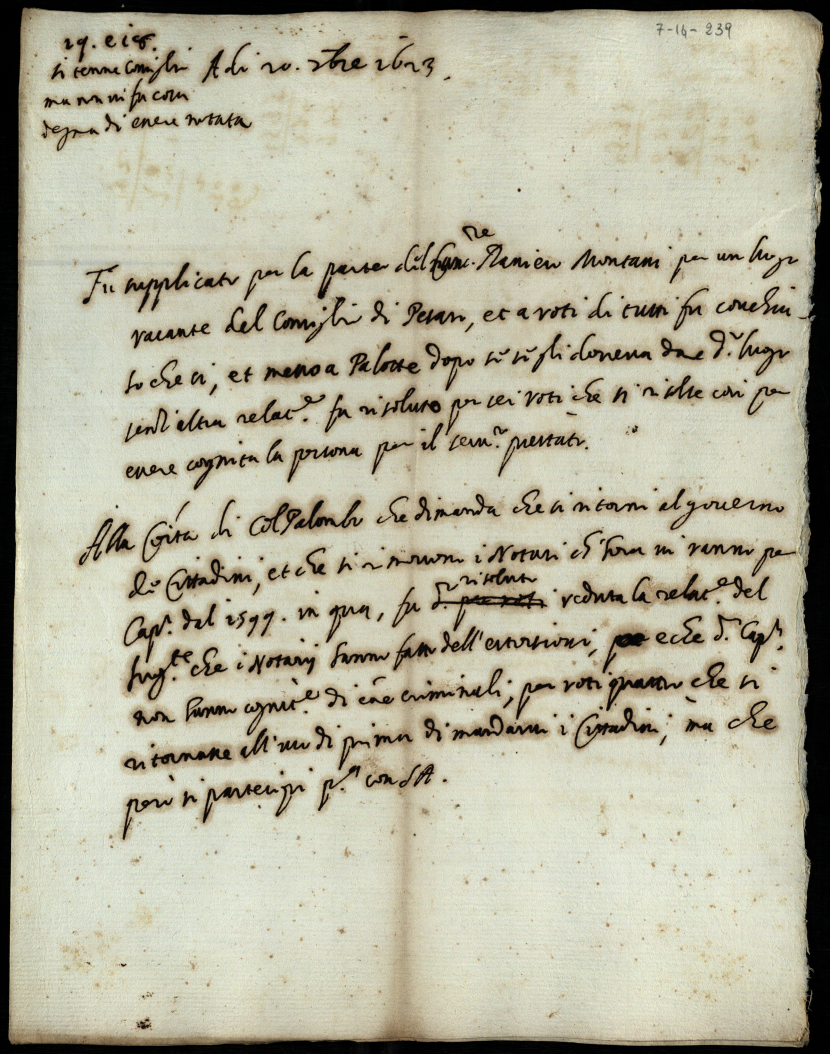 7-14-239
17. e 18.
si tenne Consiglio
ma non vi fu cosa
degna di essere notata
A di 20. 7bre 1623.
Fù supplicato per la parte del Ranieri Montani per un luogo
vacante del Consiglio di Pesaro, et a voti di tutti fu conchiu-
so che si, et messo a Palotte dopo se se gli doveva dare d.º luogo
senz'altra relat.e fu risoluto per sei voti che si risolve così per
essere cognita la persona per il serv.º prestato.
Alla Co̅ita di Col Palombo che dimanda che si ritorni al governo
de Cittadini, et che si rimovano i Notari ch' hora vi vanno per
Cap.ni dal 1599. in qua, fu risoluto veduta la relat.e del
luog.te che i Notarij hanno fatto dell'estorsioni, e che d.i Cap.ni
non hanno cognit.e di cause criminali, per voti quattro che si
ritornasse all'uso di prima di mandarvi i Cittadini, ma che
però si partecipi p.a con SA.